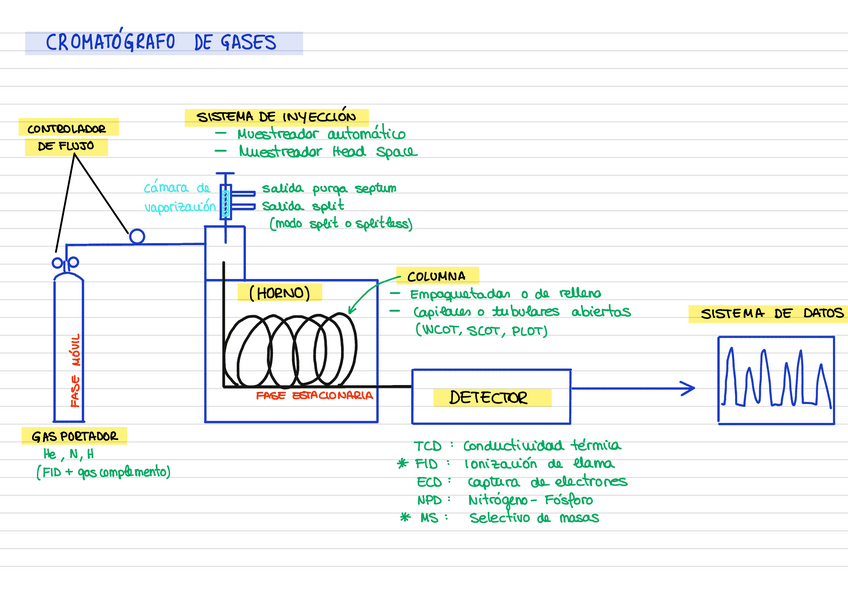 CROMATÓGRAFO DE GASES
CONTROLADOR
DE FLUJO
SISTEMA DE INYECCIÓN
- Muestreador automático
- Muestreador Head Space
cámara de
vaporización
salida purga septum
salida split
(modo split o splitless)
(HORNO)
COLUMNA
- Empaquetadas o de relleno
- Capilares o tubulares abiertas
(WCOT, SCOT, PLOT)
SISTEMA DE DATOS
FASE MÓVIL
FASE ESTACIONARIA
DETECTOR
GAS PORTADOR
He, N, H
(FID + gas complemento)
TCD : Conductividad térmica
* FID : Ionización de llama
ECD : Captura de electrones
NPD : Nitrógeno - Fósforo
* MS : Selectivo de masas